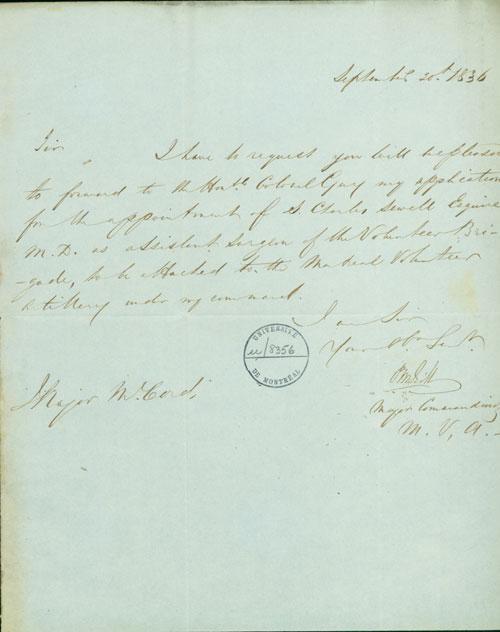 September 20th 1836
Sir
I have to request you will be pleased
to forward to the Honble Colonel Guy my application
for the appointment of S. Charles Sewell Esquire
M.D. as assistent surgeon of the Volunteer Bri-
-gade, to be attached to the Montreal Volunteer
artillery under my command.
I am Sir
Your Obt Sert
Major Commanding
M. V. A. -
Major McCord
UNIVERSITÉ
u/8356
DE MONTRÉAL